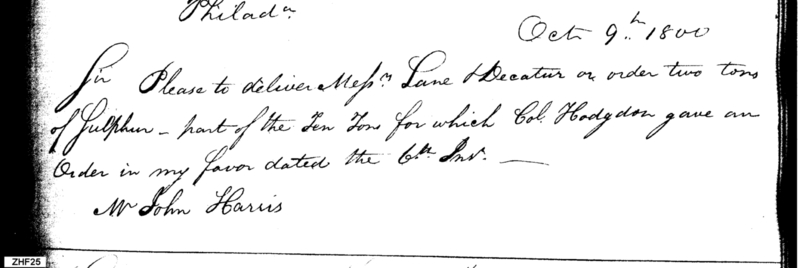 Philada.
Octr 9th 1800
Sir Please to deliver Messrs Lane & Decatur or order two tons
of Sulphur - part of the Ten Tons for which Col. Hodgdon gave an
Order in my favor dated the 6th Inst. —
Mr John Harris
ZHF25